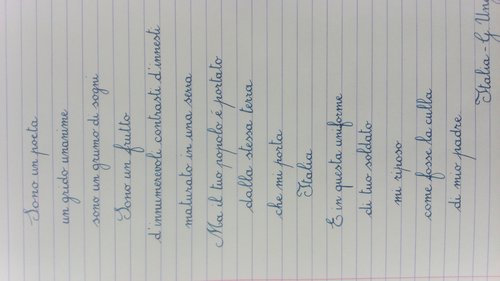 Sono un poeta
un grido unanime
sono un grumo di sogni
Sono un frutto
d'innumerevoli contrasti d'innesti
maturato in una serra
Ma il tuo popolo é portato
dalla stessa terra
che mi porta
Italia
E in questa uniforme
di tuo soldato
mi riposo
come fosse la culla
di mio padre
Italia - G. Ung